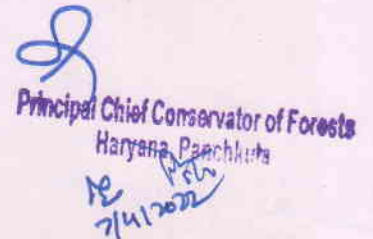 Principal Chief Conservator of Forests
Haryana, Panchkula
7/4/2022